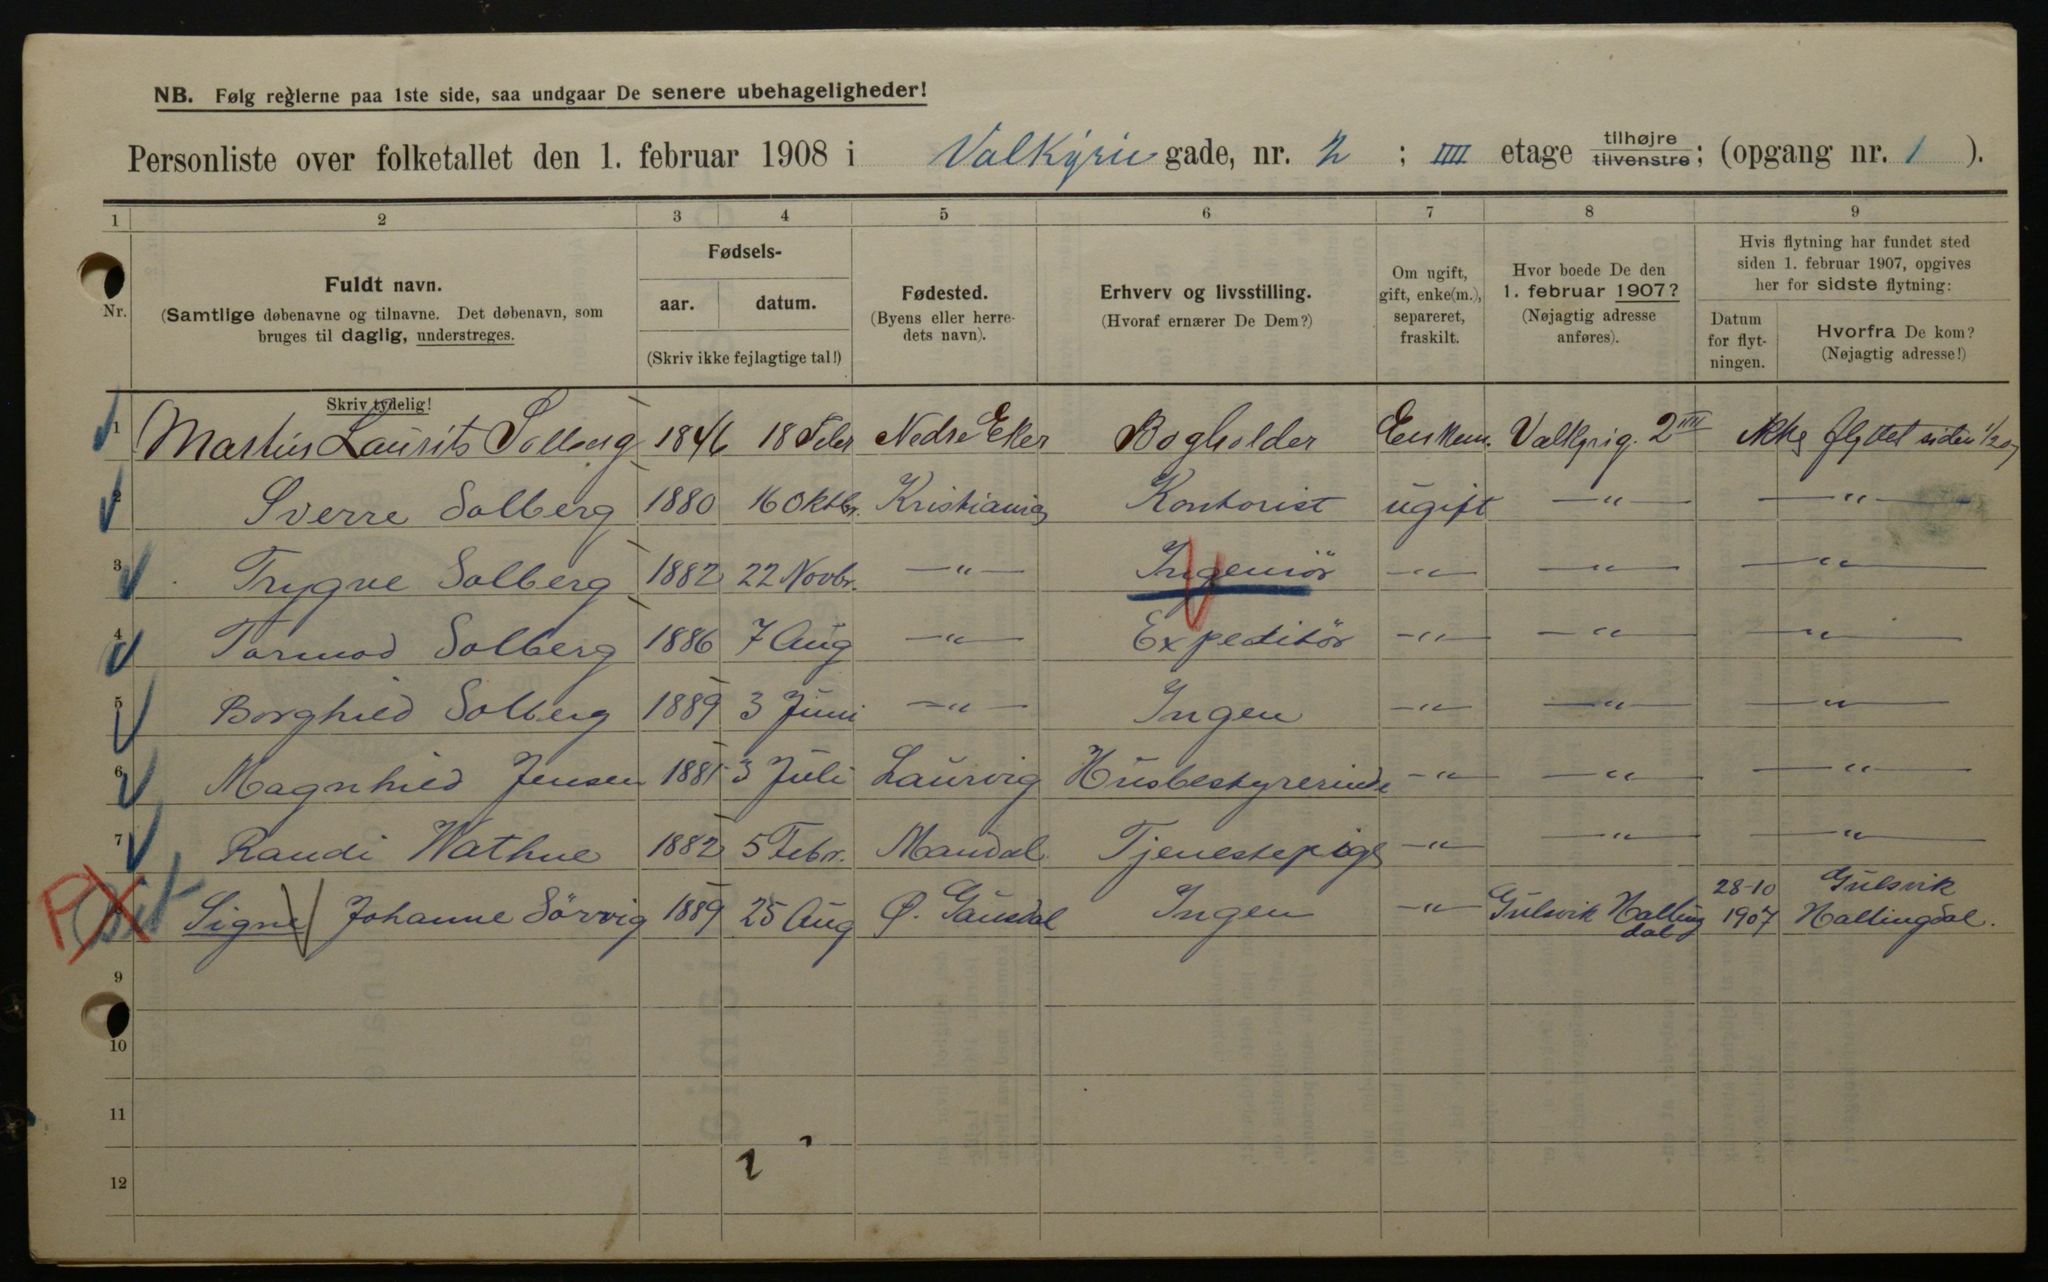 NB. Følg reglerne paa 1ste side, saa undgaar De senere ubehageligheder!
Personliste over folketallet den 1. februar 1908 i Valkyrie gade, nr. 2 ; IIII etage tilhøjre tilvenstre; (opgang nr. 1 ).
1 2 3 4 5 6 7 8 9
Nr.
Fuldt navn.
(Samtlige døbenavne og tilnavne. Det døbenavn, som
bruges til daglig, understreges.
Skriv tydelig!
Fødsels-
aar. datum.
(Skriv ikke fejlagtige tal!)
Fødested.
(Byens eller herre-
dets navn).
Erhverv og livsstilling.
(Hvoraf ernærer De Dem?)
Om ugift,
gift, enke(m.),
separeret,
fraskilt.
Hvor boede De den
1. februar 1907?
(Nøjagtig adresse
anføres).
Hvis flytning har fundet sted
siden 1. februar 1907, opgives
her for sidste flytning:
Datum
for flyt-
ningen.
Hvorfra De kom?
(Nøjagtig adresse!)
1 Martin Laurits Solberg 1846 18 Febr Nedre Eker Bogholder Enkem. Valkyrig. 2 IIII Ikke flyttet siden 1/2 07
2 Sverre Solberg 1880 16 Oktbr. Kristiania Kontorist ugift —"— —"—
3 Trygve Solberg 1882 22 Novbr. —"— Ingeniör —"— —"— —"—
4 Tormod Solberg 1886 7 Aug —"— Expeditör —"— —"— —"—
5 Borghild Solberg 1889 3 Juni —"— Ingen —"— —"— —"—
6 Magnhild Jensen 1881 3 Juli Laurvig Husbestyrerinde —"— —"— —"—
7 Randi Wathne 1882 5 Febr. Mandal Tjenestepige —"— —"— —"—
Signe Johanne Sörvig 1889 25 Aug Ø. Gausdal Ingen —"— Gulsvik Halling dal 28-10 1907 Gulsvik Hallingdal.
9
10
11
12